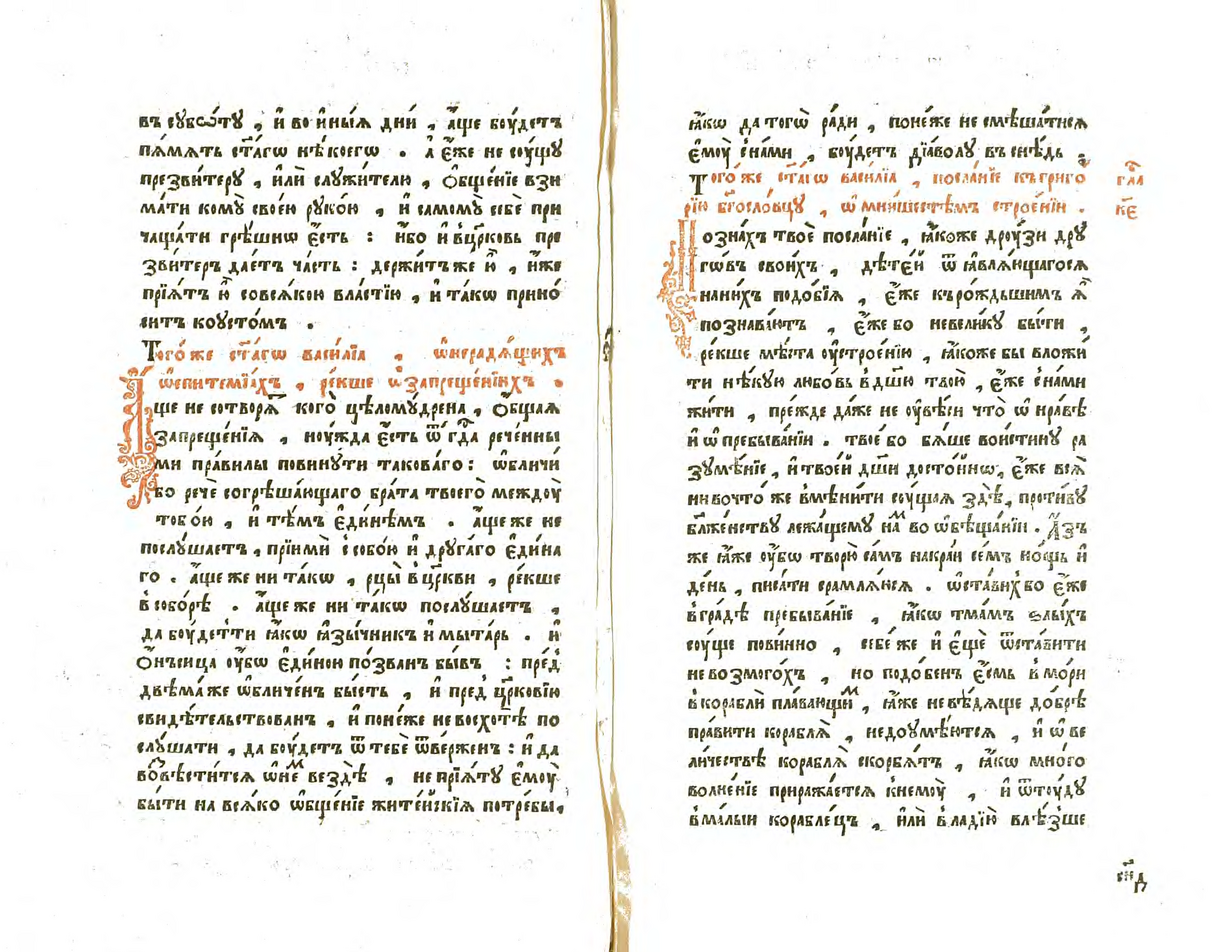 въ сꙋбѡ́тꙋ , и҆ во и҆ны́ѧ дни́ , а҆́ще бꙋ́детъ
па́мѧть ст҃а́гѡ нѣ́коегѡ . а҆ є҆́же не сꙋ́щꙋ
презви́терꙋ , и҆лѝ слꙋжи́телю , ѻ҆бще́нїе взи
ма́ти комꙋ̀ свое́ю рꙋко́ю , и҆ самомꙋ̀ себѐ при
чаща́ти грѣ́шнѡ є҆́сть : и҆́бо и҆ в цр҃ковь пре
зви́теръ дае́тъ ча́сть : держи́тъ же ю҆̀ , и҆́же
прїѧ́тъ ю҆̀ со всѧ́кою вла́стїю , и҆ та́кѡ прино́
ситъ ко ᲂу҆сто́мъ .
Того́ же ст҃а́гѡ васи́лїа , ѡ҆ нерадѧ́щихъ
ѡ҆ епитемїа́хъ , ре́кше ѡ҆ запреще́нїихъ .
А҆́ще не сотворѧ́тъ кого̀ цѣломꙋ́дрена , ѻ҆́бщаѧ
запреще́нїѧ , нꙋ́жда є҆́сть ѿ гд҇а рече́нны
ми пра́вилы повинꙋ́ти такова́го : ѡ҆бличи́
бо речѐ согрѣша́ющаго бра́та твоего̀ междꙋ̀
тобо́ю , и҆ тѣ́мъ є҆ди́нѣмъ . а҆́ще же не
послꙋ́шаетъ , прїимѝ с собо́ю и҆ дрꙋга́го є҆ди́на
го . а҆́ще же ни та́кѡ , рцы̀ в цр҃кви , ре́кше
в собо́рѣ . а҆́ще же ни та́кѡ послꙋ́шаетъ ,
да бꙋ́детъ ти ꙗ҆́кѡ ꙗ҆зы́чник и҆ мыта́рь . и҆
ѻ҆нъсица ᲂу҆́бѡ є҆ди́ною по́званъ бы́въ : пред
двѣма́ же ѡ҆бличе́нъ бы́сть , и҆ пред цр҃ковїю
свидѣ́тельствованъ , и҆ поне́же не восхотѣ̀ по
слꙋ́шати , да бꙋ́детъ ѿ тебѐ ѿве́рженъ : и҆ да
во́звѣсти́тсѧ ѡ҆ не́м вездѣ̀ , не прїѧ́тꙋ є҆мꙋ̀
бы́ти на всѧ́ко ѡ҆бще́нїе жите́йскїѧ потре́бы,
ꙗ҆́кѡ да того̀ ра́ди , поне́же не смѣша́тисѧ
є҆мꙋ̀ с на́ми , бꙋ́детъ дїа́волꙋ въ снѣ́дь .
Того́ же ст҃а́гѡ васи́лїа , посла́нїе къ григо́
рїю бг҃осло́вцꙋ , ѡ҆ мни́шестѣмъ строе́нїи .
гла
к҃є
Позна́хъ твоѐ посла́нїе , ꙗ҆́коже дрꙋ́зи дрꙋ
гѡ́въ свои́хъ , дѣте́й ѿ ꙗ҆влѧ́ющагосѧ
на ни́хъ подо́бїѧ , є҆́же къ ро́ждьшимъ ѧ҆̀
познава́ютъ , є҆́же бо невели́кꙋ бы́ти ,
ре́кше мѣ́ста ᲂу҆строе́нїю , ꙗ҆́коже бы вложи́
ти нѣ́кꙋю любо́вь в дш҃ꙋ твою̀ , є҆́же с на́ми
жи́ти , пре́жде да́же не ᲂу҆вѣ́си что̀ ѡ҆ нра́вѣ
и҆ ѡ҆ пребыва́нїи . твое́ бо бѧ́ше вои́стинꙋ ра
зꙋмѣ́нїе , и҆ твое́й дш҃и досто́йнѡ, є҆́же всѧ̀
ни во что́ же вмѣни́ти сꙋ́щаѧ здѣ̀, проти́вꙋ
бл҃же́нствꙋ лежа́щемꙋ на́м во ѡ҆бѣща́нїи . А҆́зъ
же ꙗ҆̀же ᲂу҆́бѡ творю̀ са́мъ на кра́и се́мъ но́щь и҆
де́нь , писа́ти срамлѧ́юсѧ . ѡ҆ста́вих бо є҆́же
в гра́дѣ пребыва́нїе , ꙗ҆́кѡ тма́мъ ѕлы́хъ
сꙋ́ще пови́нно , себе́ же и҆ є҆щѐ ѡ҆ста́вити
не возмого́хъ , но подо́бенъ є҆́смь в мо́ри
в кораблѝ пла́вающим , ꙗ҆̀же не вѣ́дѧще до́брѣ
пра́вити кораблѧ̀ , недоꙋмѣ́ютсѧ , и҆ ѡ҆ ве
ли́чествѣ кораблѧ̀ скорбѧ́тъ , ꙗ҆́кѡ мно́го
волне́нїе приража́етсѧ к немꙋ̀ , и҆ ѿтꙋ́дꙋ
в ма́лыи корабле́цъ , и҆лѝ в ладїю̀ влѣ́зше
сн҃д